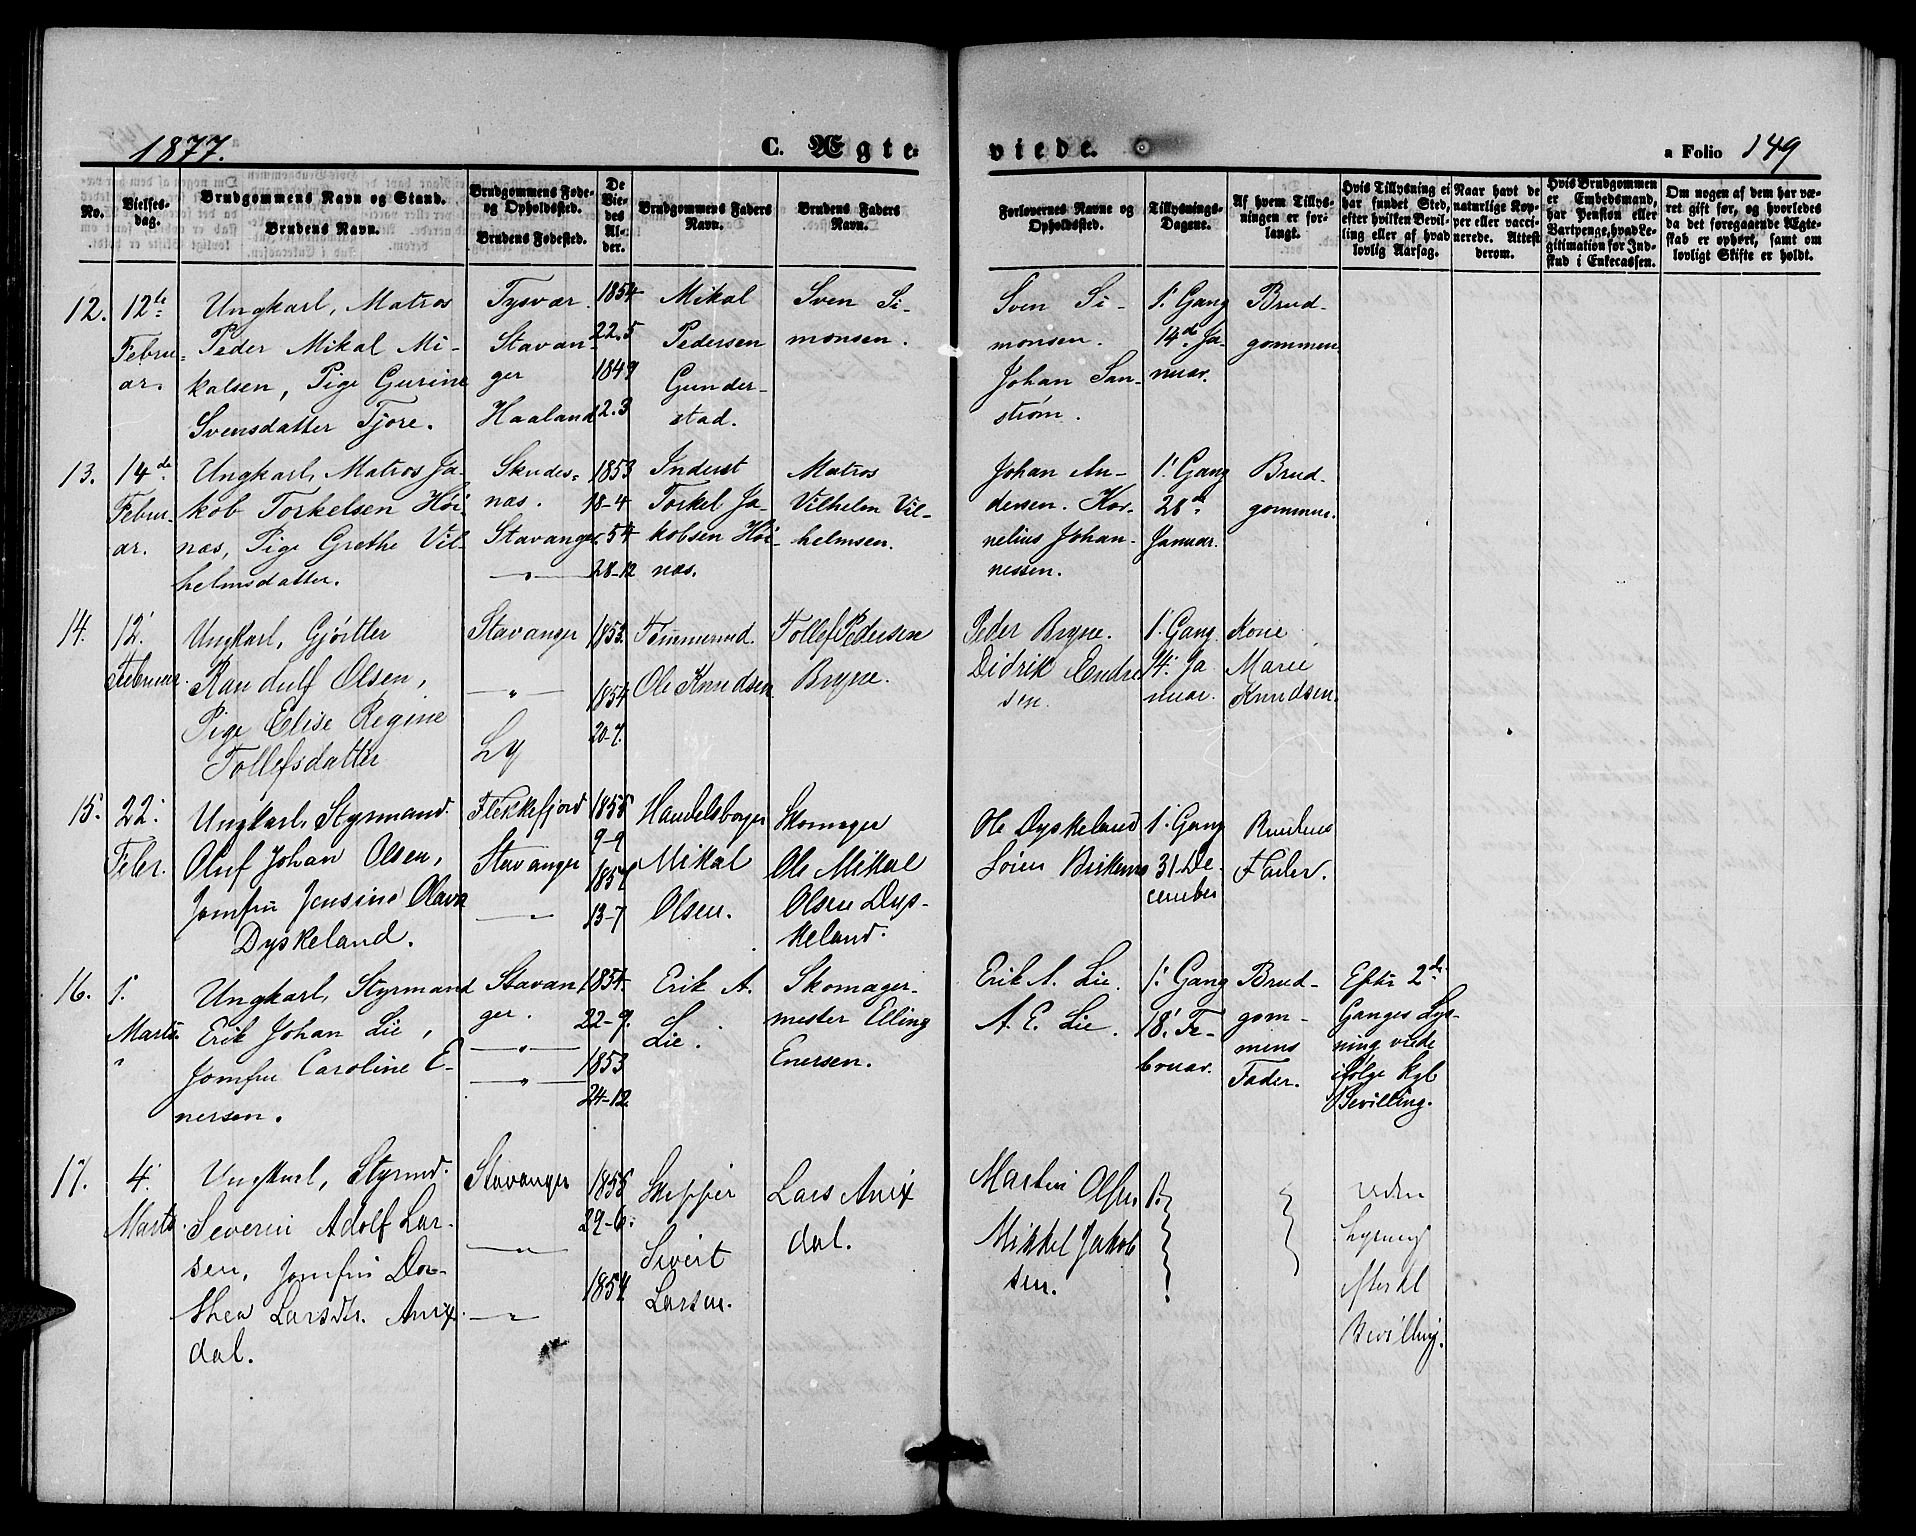 1877.
C. Ægte-
viede.
a Folio 149
No.
Vielses-
dag.
Brudgommens Navn og Stand.
Brudens Navn.
Brudgommens Føde-
og Opholdssted.
Brudens Fødested.
De
Vie-
des
Al-
der.
Brudgommens Faders
Navn.
Brudens Faders
Navn.
Forlovernes Navne og
Opholdssted.
Tillysnings-
Dagene.
Af hvem Tillys-
ningen er for-
langt.
Hvis Tillysning ei
har fundet Sted,
efter hvilken Bevil-
ling eller af hvad
lovlig Aarsag.
Naar havt de
naturlige Kop-
per eller vacci-
nerede. Attest
derom.
Hvis Brudgommen
er Embedsmand,
har Pension eller
Vartpenge, hvad Le-
gitimation for Ind-
skud i Enkecassen.
Om nogen af dem har væ-
ret gift før, og hvorledes
da det foregaaende Ægte-
skab er ophørt, samt om
lovligt Skifte er holdt.
12.
12te
Febru-
ar.
Ungkarl, Matros
Peder Mikal Mi-
kalsen, Pige Gurine
Svensdatter Tjore.
Tysvær
Stavan-
ger
Haaland
1854
22.5
1849
2.3
Mikal
Pedersen
Gunder-
stad.
Sven Si-
monsen.
Sven Si-
monsen.
Johan San-
strøm.
1. Gang
14d. Ja-
nuar.
Brud-
gommen.
13.
14de
Febru-
ar.
Ungkarl, Matros Ja-
kob Torkelsen Høi-
næs, Pige Grethe Vil-
helmsdatter.
Skudes-
næs.
Stavanger
—„—
1853
18-4
54
28-12
Inderst
Torkel Ja-
kobsen Høi-
næs.
Matros
Vilhelm Vil-
helmsen.
Johan An-
dersen. Kor-
nelius Johan-
nessen.
1. Gang
28d.
Januar.
Brud-
gommen.
14.
12.
Februar.
Ungkarl, Gjørtler
Randulf Olsen,
Pige Elise Regine
Tollefsdatter
Stavanger
—„—
Ly
1853.
1854
20-7.
Tømmermd.
Ole Knudsen
Tollef Pedersen
Bryne.
Peder Bryne.
Didrik Endre
sen.
1. Gang
14. Ja
nuar.
Kone
Marie
Knudsen.
15.
22.
Febr.
Ungkarl, Styrmand
Oluf Johan Olsen,
Jomfru Jensine Olava
Dyskeland.
Flekkefjord
Stavanger
—„—
1855
9-9
1857
13-7
Handelsborger
Mikal
Olsen.
Skomager
Ole Mikal
Olsen Dys-
keland.
Ole Dyskeland
Søren
1. Gang
31 De-
cember
Brudens
Fader.
16.
1.
Marts.
„
Ungkarl, Styrmand
Erik Johan Lie,
Jomfru Caroline E-
nersen.
Stavan-
ger.
—„—
—„—
1854.
22-9.
1853
24-12
Erik A.
Lie.
Skomager-
mester Elling
Enersen.
Erik A. Lie.
A. E. Lie.
1. Gang
18. Fe-
bruar.
Brud-
gom-
mens
Fader.
Efter 2de
Ganges Lys-
ning viede
ifølge Kgl
Bevilling.
17.
4.
Marts.
Ungkarl, Styrmd.
Severin Adolf Lar-
sen, Jomfru Do-
thea Larsdtr. Anix
dal.
Stavanger
—„—
—„—
1855
29-6.
1854
Skipper
Sivert
Larsen.
Lars Anix
dal.
Martin Olsen
Mikkel Jakob
sen.
uden
Lysning
efter kl
Bevilling.